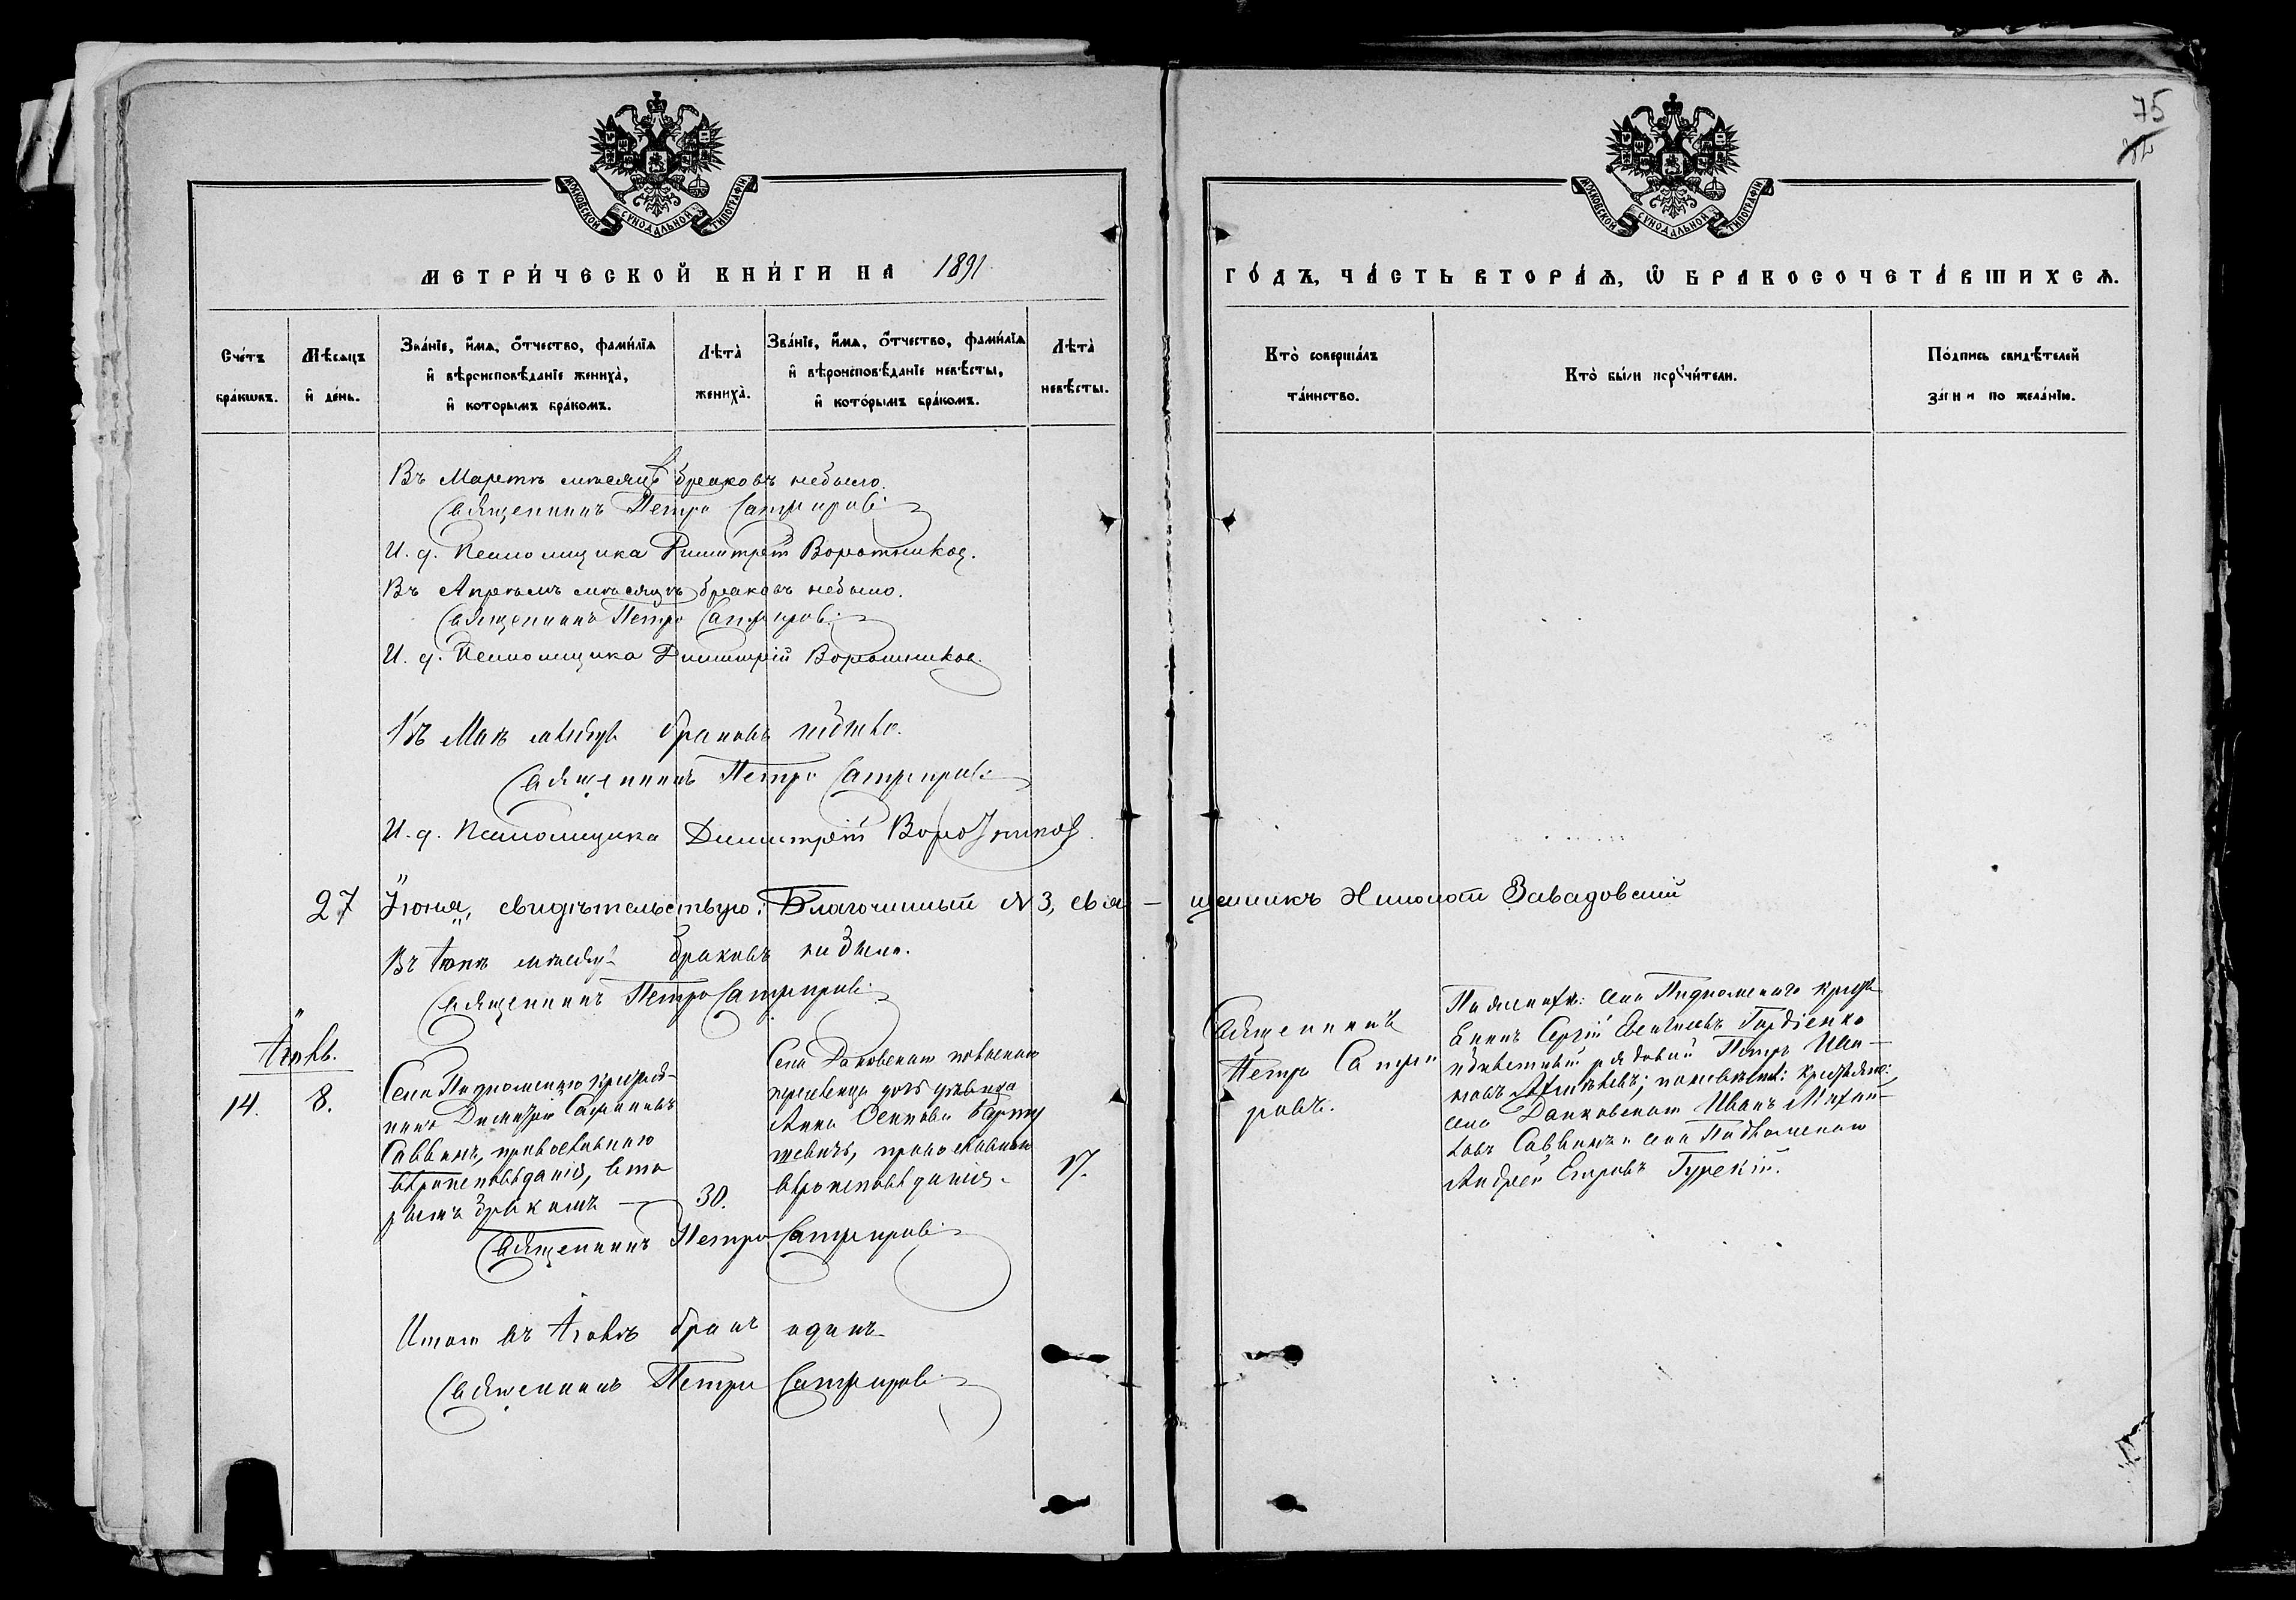 75
МОСКОВСКОЙ СУНОДАЛЬНОЙ ТИПОГРАФІИ
МОСКОВСКОЙ СУНОДАЛЬНОЙ ТИПОГРАФІИ
МЕТРИ́ЧЕСКОЙ КНИ́ГИ НА 1891
ГО́ДЪ, ЧА́СТЬ ВТОРА́Ѧ, Ѡ҆ БРАКОСОЧЕТА́ВШИХСѦ.
Сче́тъ бра́кѡвъ.
Мѣ́сяцъ и҆ де́нь.
Зва́нїе, и҆́мѧ, ѻ҆́тчество, фами́лїѧ и҆ вѣроисповѣ́данїе жениха̀, и҆ кото́рымъ бра́комъ.
Лѣта̀ жениха̀.
Зва́нїе, и҆́мѧ, ѻ҆́тчество, фами́лїѧ и҆ вѣроисповѣ́данїе невѣ́сты, и҆ кото́рымъ бра́комъ.
Лѣта̀ невѣ́сты.
Кто̀ соверша́лъ та́инство.
Кто̀ бы́ли порꙋчи́тели.
По́дпись свидѣ́телей за́писи по жела́нїю.
Въ Мартѣ мѣсяцѣ браковъ небыло.
Священникъ Петръ Сапфировъ
И. д. Псаломщика Димитрій Воротников.
Въ Апрелѣ мѣсяцѣ браковъ небыло.
Священникъ Петръ Сапфировъ
И. д. Псаломщика Димитрій Воротников.
Въ Маѣ мѣсяцѣ браковъ небыло.
Священникъ Петръ Сапфировъ
И. д. Псаломщика Димитрій Воротников.
27 Іюня, свидѣтельствую: Благочинный N 3, свя- щенникъ Завадовскій
Въ Іюнѣ мѣсяцѣ браковъ небыло.
Священникъ Петръ Сапфировъ
Іюль.
14.
8.
Села Подгорненскаго крестья-
нинъ Димитрій
Саввинъ, православнаго
вѣроисповѣданія, вто-
рымъ бракомъ —
30.
Села Донковскаго
дочь дѣвица
Анна Осипова
православнаго
вѣроисповѣданія.
17.
Священникъ
Петръ Сапфи
ровъ.
По женихѣ: села крестья
нинъ Сергій Гордіенко
рядовый Петръ Ива-
новъ по невѣстѣ: крестьяне:
села Донковскаго Иванъ
Саввинъ и села
Андрей Егоровъ Гурскій.
Священникъ Петръ Сапфировъ
Итого въ Іюлѣ бракъ одинъ
Священникъ Петръ Сапфировъ